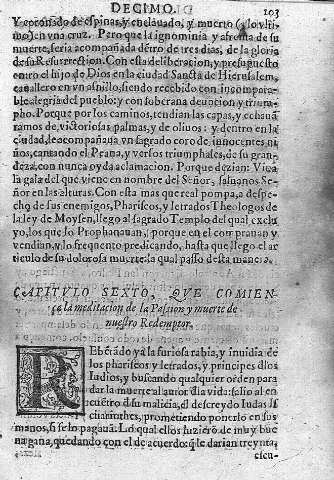 DECIMO. 103
Y coronado de espinas, y enclauado, y muerto (a lo vlti
mo) en vna cruz. Paro que la ignominia y afrenta de su
muerte, seria acompañada dẽtro de tres dias, de la gloria
de su Resurrection. Con esta deliberacion, y presupuesto
entro el hijo de Dios en la ciudad Sancta de Hierusalem,
cauallero en vn asnillo, siendo recebido con incompara-
ble alegria del pueblo: y con soberana deuocion y trium-
pho. Porque por los caminos, tendian las capas, y echauã
ramos de victoriosas palmas, y de oliuos: y dentro en la
ciudad, le acompañaua vn sagrado coro de innocentes ni
ños, cantando el Peana, y versos triumphales, de su gran-
deza, con nueua oyda aclamacion. Porque dezian: Viua
la gala del que viene en nombre del Señor, saluanos Se-
ñor en las alturas. Con esta mas que real pompa, a despe-
cho de sus enemigos, Phariseos, y letrados Theologos de
la ley de Moysen, llego al sagrado Templo del qual exclu
yo, los que lo Prophanauan, porque en el comprauan y
vendian, y lo frequento predicando, hasta que llego el ar
ticulo de su dolorosa muerte: la qual passo desta manera.
CAPITVLO SEXTO, QVE COMIEN-
ça la meditacion de la Passion y muerte de
nuestro Redemptor.
REBEntado ya la furiosa rabia, y inuidia de
los phariseos y letrados, y principes dlos
Iudios, y buscando qualquier orden para
dar la muerte al autor dla vida: salio al en
cuẽtro d su malicia, el descreydo Iudas
prometiendo ponerlo en sus
manos, si se lo pagauã: Lo qual ellos hizierõ de muy bue
na gana, quedando con el de acuerdo: q̃ le darian treynta
escu-